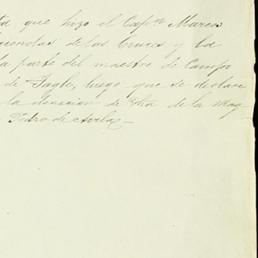 ta que hizo el Cap.n Marcos
de las Cruces y la
la parte del maestre de Campo
de Tagle, luego que se declare
la donacion de dha de la may
Pedro de Avila